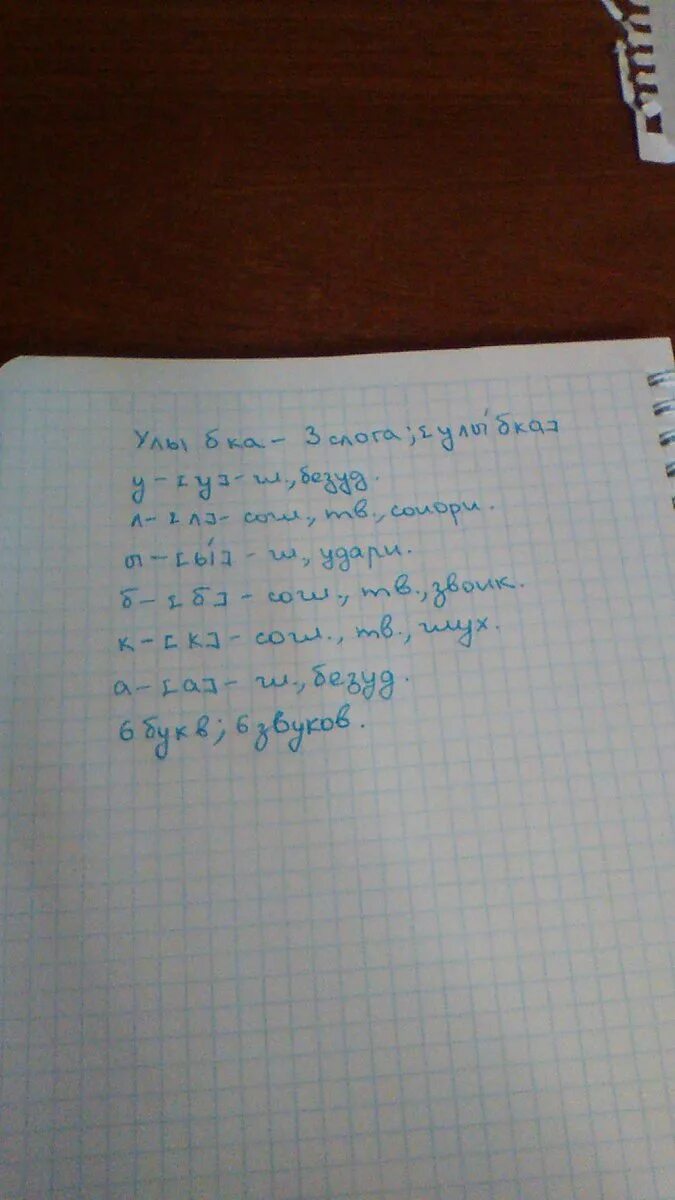 Улыбка - 3 слога; [улы́бка]
у - [у] - гл., безуд.
л - [л] - согл., тв., сонорн.
ы - [ы́] - гл., ударн.
б - [б] - согл., тв., звонк.
к - [к] - согл., тв., глух.
а - [а] - гл., безуд.
6 букв; 6 звуков.